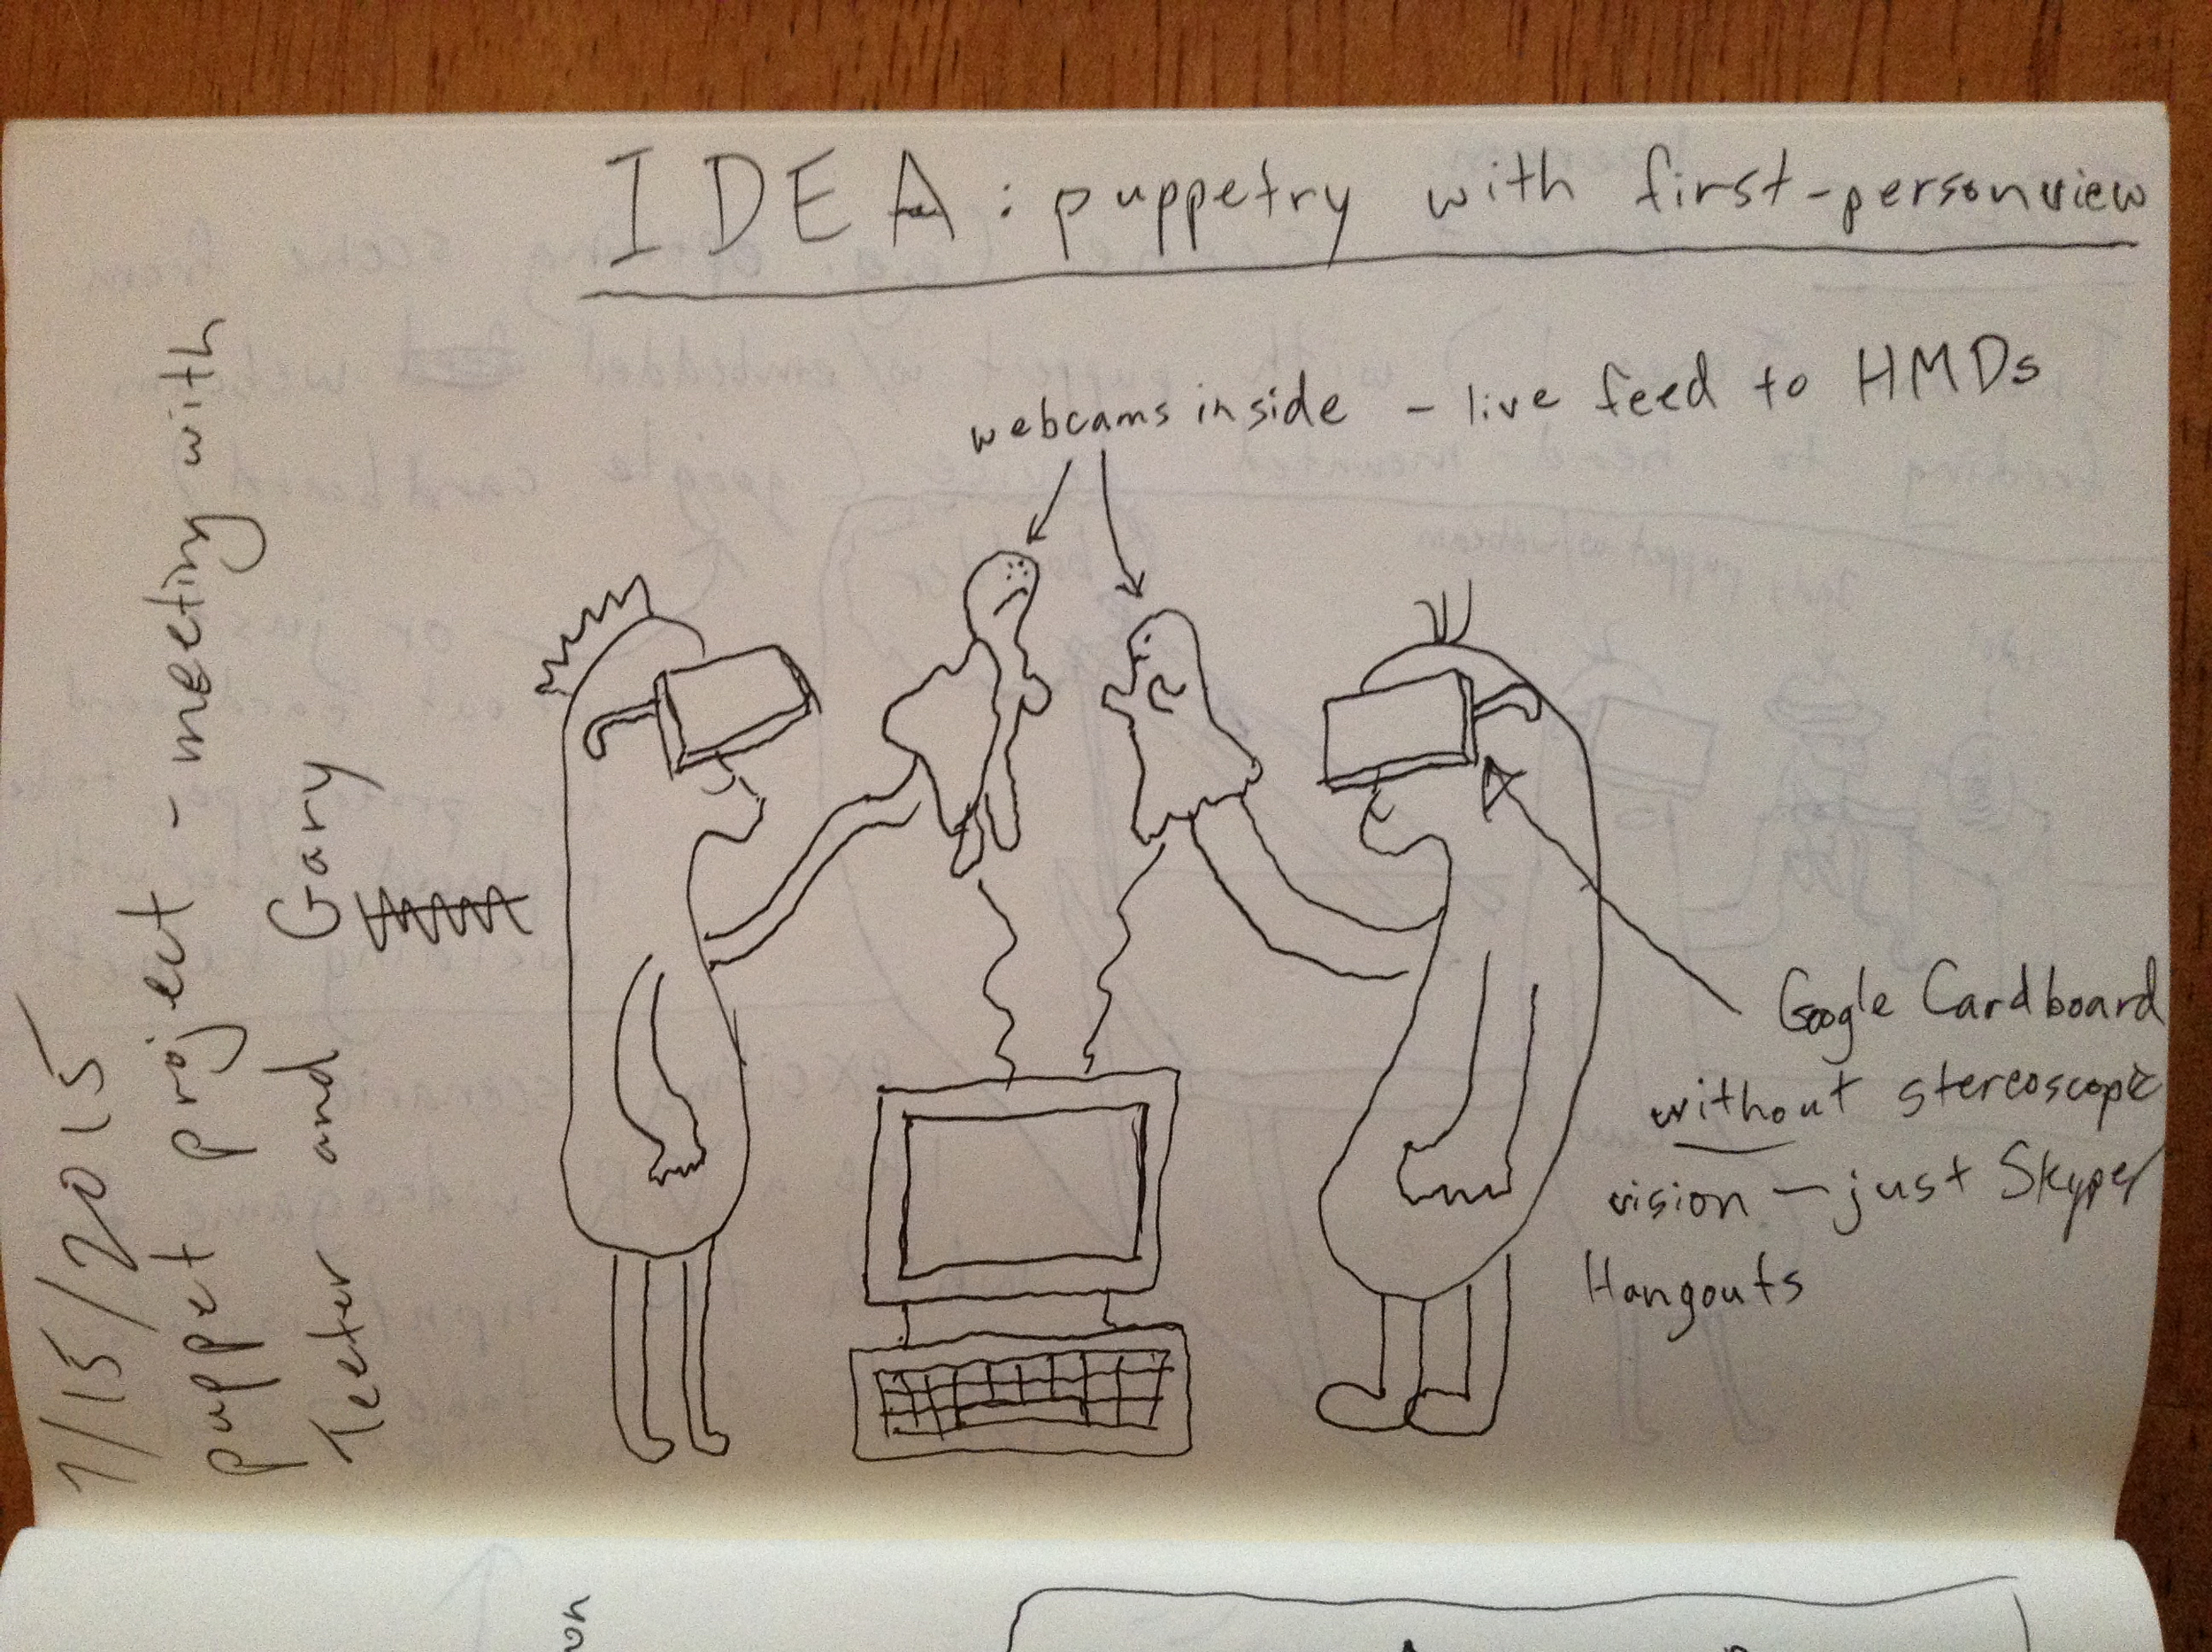 IDEA: puppetry with first-person view
webcams inside - live feed to HMDs
Google Cardboard
without stereoscopic
vision - just Skype/
Hangouts
1/15/2015
puppet project - meeting with
Teeter and Gary